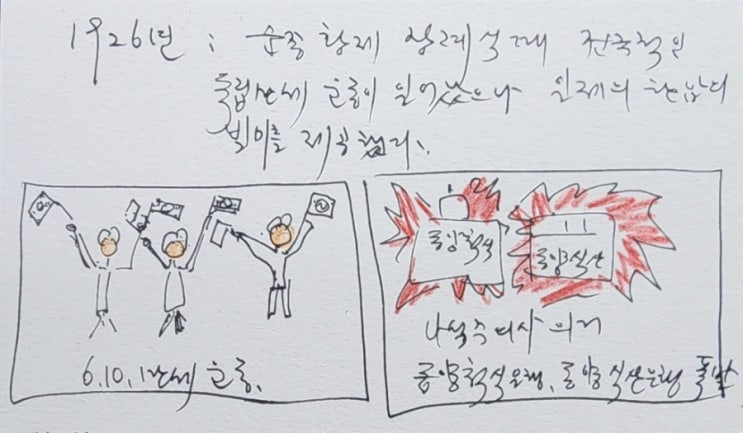 1926년 : 순종황제 상례식때 전국적인
독립만세 운동이 일어났으나 일제의
빌미를 제공했다.
동양척식
동양식산
6.10. 만세 운동.
나석주 의사 의거
동양척식은행, 동양식산은행 폭발